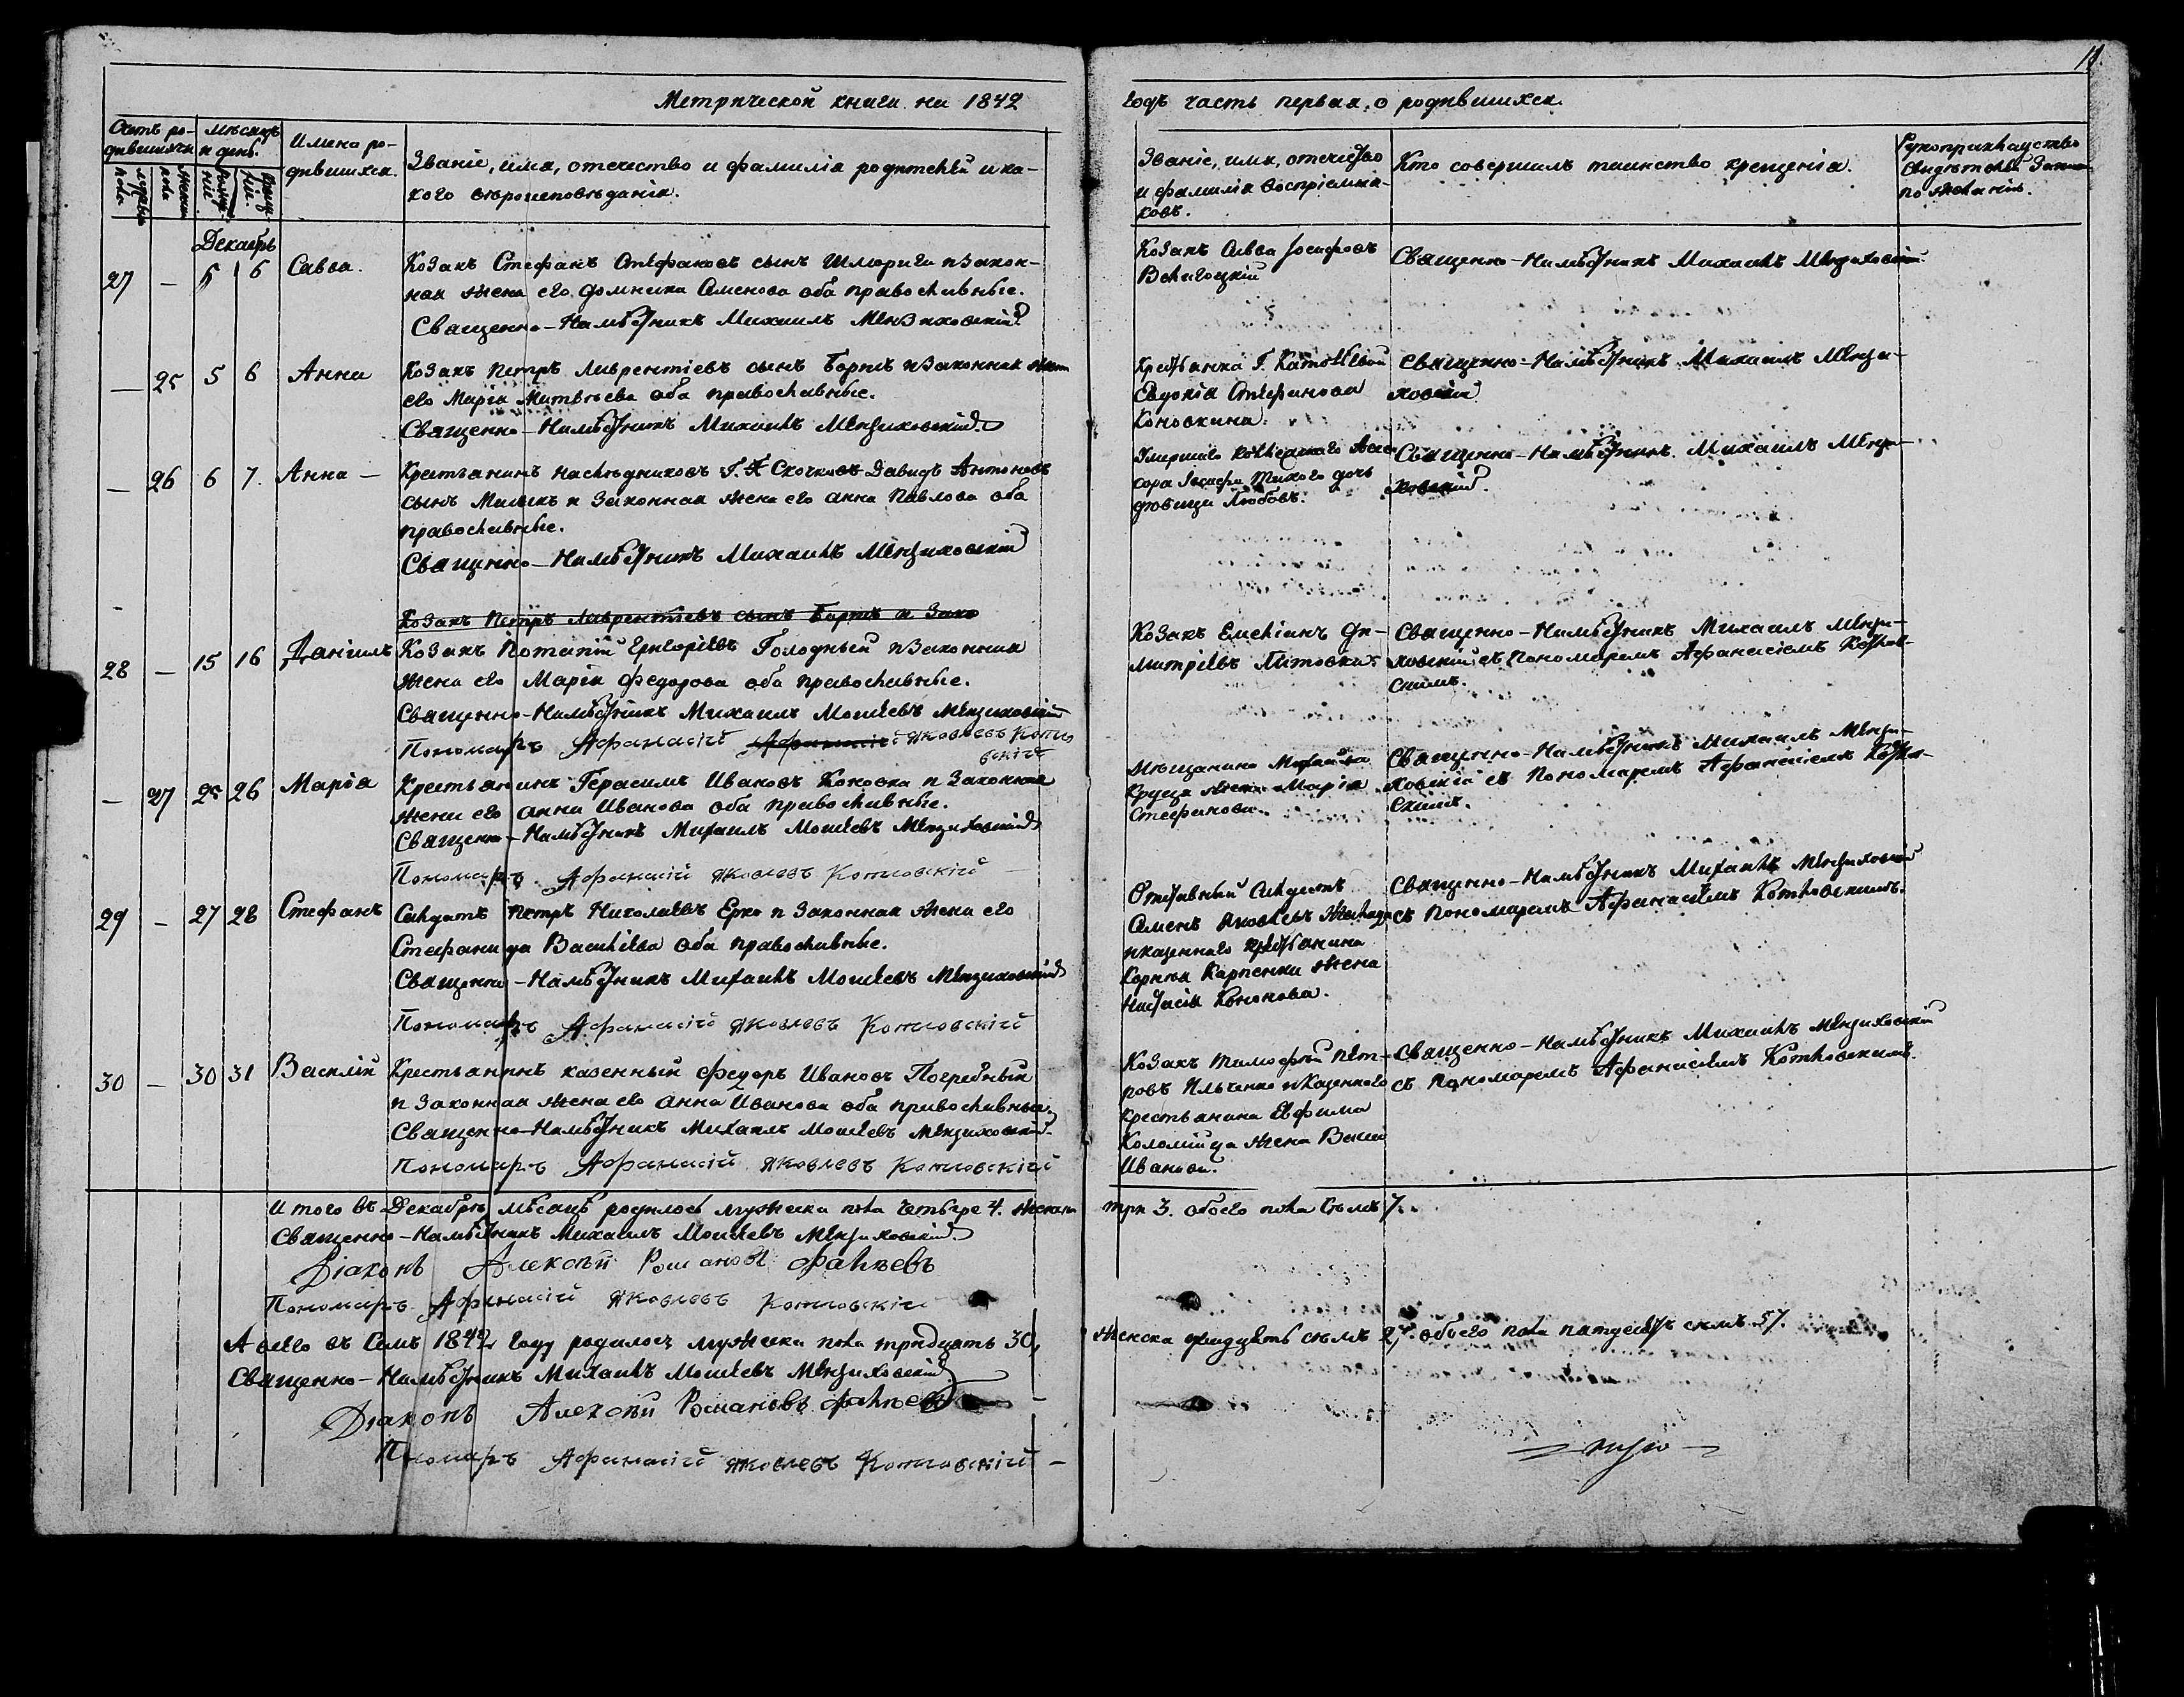 11.
Метрической книги на 1842
годъ часть первая, о родившихся.
Счетъ ро-
дившихся
мѣсяцъ
и день.
Имена ро-
дившихся.
Званіе, имя, отечество и фамилія родителей и ка-
кого вѣроисповѣданія.
Званіе, имя, отечество
и фамилія воспріемни-
ковъ.
Кто совершилъ таинство крещенія.
Рукоприкладство
свидѣтелей
по желанію.
мужеска пола
женска пола
рожде-
нія
креще-
нія.
Декабрь
27 — 5 6 Савва.
Козакъ Стефанъ Стефановъ сынъ и закон-
ная жена его Домника Семенова оба православные.
Священно-Намѣстникъ Михаилъ Мензиховскій
Козакъ Савва Іосифовъ
Священно-Намѣстникъ Михаилъ Мензиховскій
— 25 5 6 Анна
Козакъ Петръ Лаврентіевъ сынъ Бортъ и законная жена
его Марія Матвѣева оба православные.
Священно-Намѣстникъ Михаилъ Мензиховскій
Крестьянка Г.
Евдокія Стефанова
Коновкина.
Священно-Намѣстникъ Михаилъ Мензи-
ховскій
— 26 6 7. Анна —
Крестьянинъ наслѣдниковъ Г. Давидъ Антоновъ
сынъ и законная жена его Анна Павлова оба
православные.
Священно-Намѣстникъ Михаилъ Мензиховскій
Умершаго Асес-
сора Іосифа дочь
дѣвица Любовь.
Священно-Намѣстникъ Михаилъ Мензи-
ховскій.
Козакъ Петръ Лаврентіевъ сынъ Бортъ и зако
28 — 15 16 Даніилъ
Козакъ Потапій Григоріевъ Голодный и законная
жена его Марія Федорова оба православные.
Священно-Намѣстникъ Михаилъ Моисеевъ Мензиховскій
Пономаръ Афанасій Афанасій Яковлевъ Котло
вскій
Козакъ Емеліанъ Ди-
митріевъ
Священно-Намѣстникъ Михаилъ Мензи-
ховскій съ Пономаремъ Афанасіемъ Котлов-
скимъ.
— 27 25 26 Марія
Крестьянинъ Герасимъ Ивановъ Коновка и законная
жена его Анна Иванова оба православные.
Священно-Намѣстникъ Михаилъ Моисеевъ Мензиховскій
Пономаръ Афанасій Яковлевъ Котловскій
Мѣщанина
жена Марія
Стефанова.
Священно-Намѣстникъ Михаилъ Мензи-
ховскій съ Пономаремъ Афанасіемъ Котлов-
скимъ.
29 — 27 28 Стефанъ
Салдатъ Петръ Николаевъ Ерко и законная жена его
Стефанида Васильева оба православные.
Священно-Намѣстникъ Михаилъ Моисеевъ Мензиховскій
Пономаръ Афанасій Яковлевъ Котловскій
Отставный Салдатъ
Семенъ Яковлевъ
и казеннаго крестьянина
Корнѣя Карпенка жена
Настасія Кононова.
Священно-Намѣстникъ Михаилъ Мензиховскій
съ Пономаремъ Афанасіемъ Котловскимъ.
30 — 30 31 Василій
Крестьянинъ казенный Федоръ Ивановъ Погребный
и законная жена его Анна Иванова оба православные
Священно-Намѣстникъ Михаилъ Моисеевъ Мензиховскій
Пономаръ Афанасій Яковлевъ Котловскій
Козакъ Тимофей Пет-
ровъ Ильченко и казеннаго
крестьянина Евфима
Коломійца жена Васса
Иванова.
Священно-Намѣстникъ Михаилъ Мензиховскій
съ Пономаремъ Афанасіемъ Котловскимъ.
Итого въ Декабрѣ мѣсяцѣ родилось мужеска пола четыре 4. женска три 3. обоего пола семь 7.
Священно-Намѣстникъ Михаилъ Моисеевъ Мензиховскій
Діаконъ Алексѣй Романовъ Фалѣевъ
Пономаръ Афанасій Яковлевъ Котловскій
А всего въ семъ 1842 году родилось мужеска пола тридцать 30, женска двадцать семь 27. обоего пола пятдесятъ семь 57.
Священно-Намѣстникъ Михаилъ Моисеевъ Мензиховскій
Діаконъ Алексѣй Романовъ Фалѣевъ
Пономаръ Афанасій Яковлевъ Котловскій